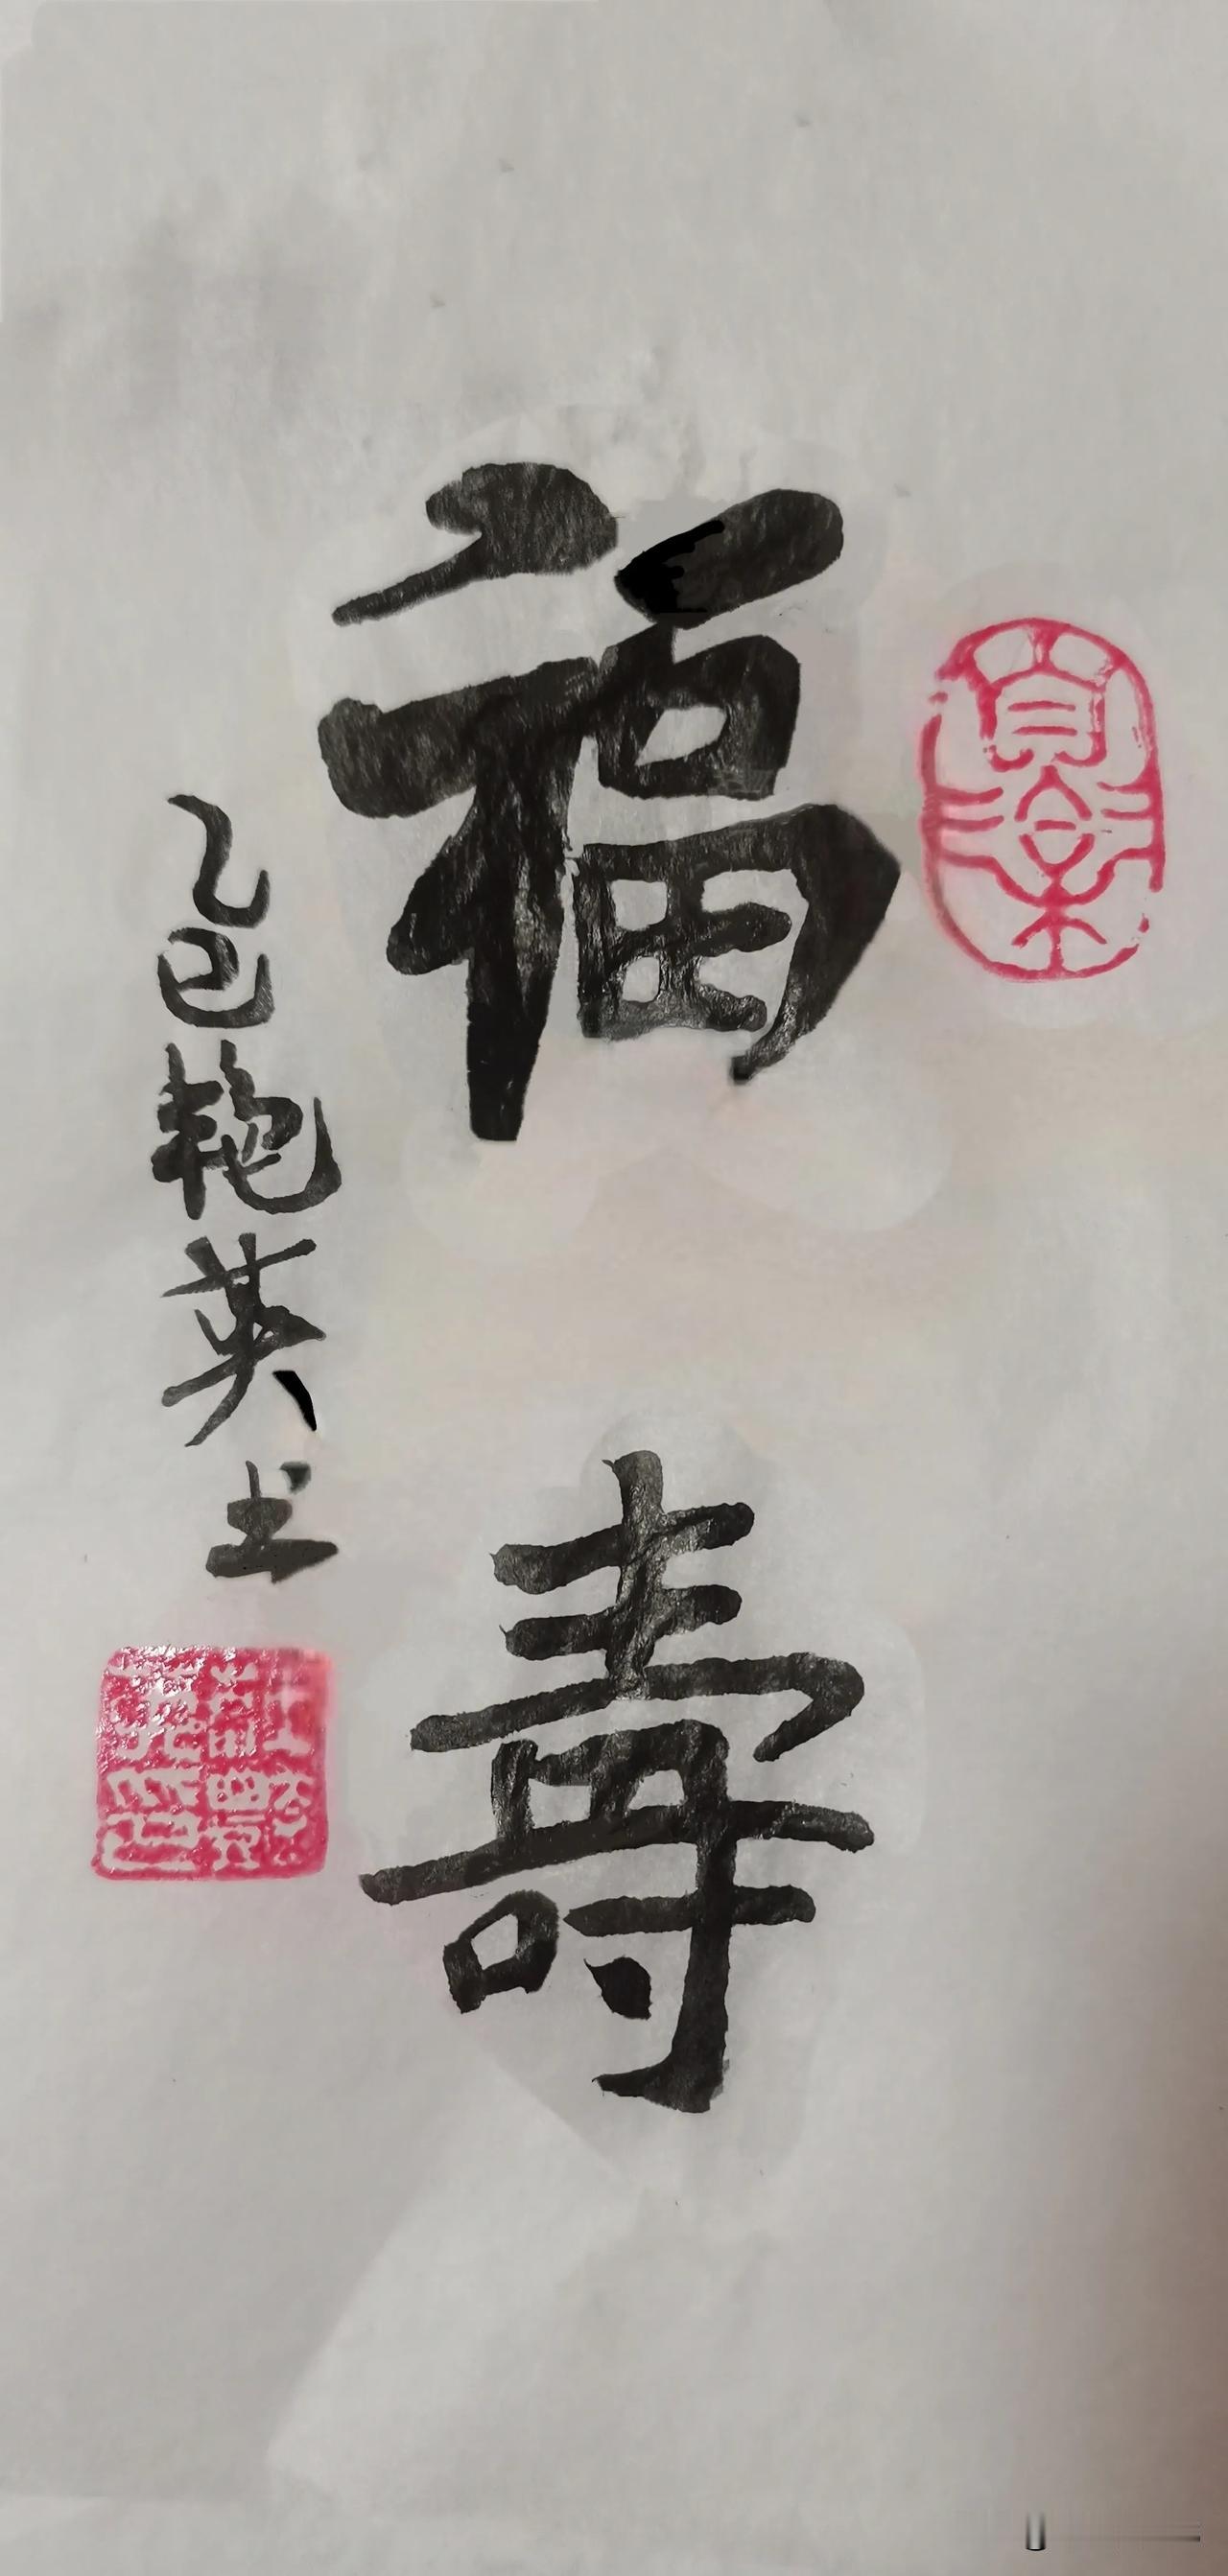 福壽
乙巳艳英书